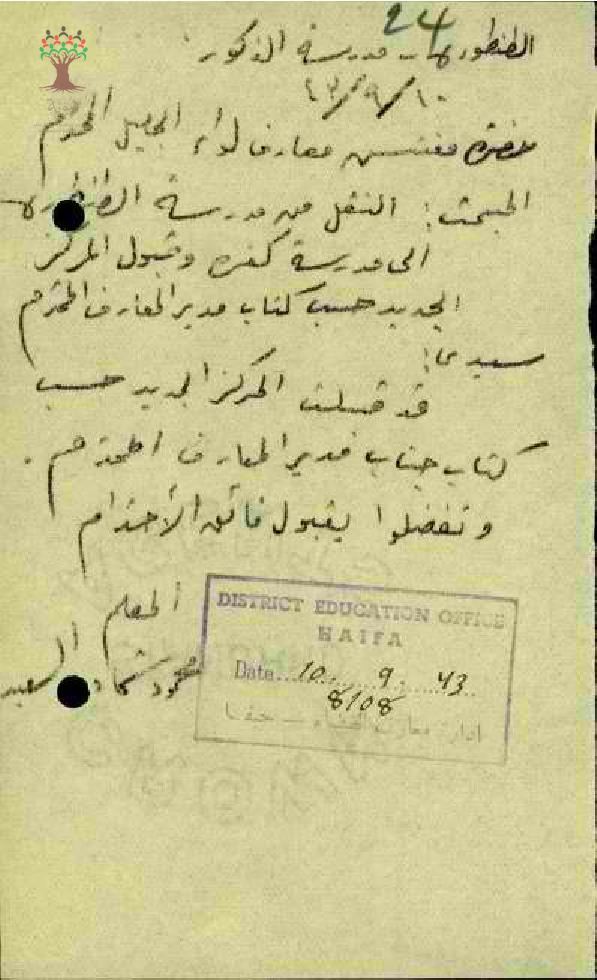 24
الطنطورة مدرسة الذكور
٤٣/٩/١٠
حضرة مفتش معارف لواء الجليل المحترم
المبحث: النقل من مدرسة الطنطورة
الى مدرسة كفره وقبول المركز
الجديد حسب كتاب مدير المعارف المحترم
سيدي:
قد قبلت المركز الجديد حسب
كتاب جناب مدير المعارف المحترم .
وتفضلوا بقبول فائق الأحترام
المعلم
محمود السعيد
DISTRICT EDUCATION OFFICE
HAIFA
Date... 10 . 9 . 43
8108
ادارة معارف القضاء – حيفا